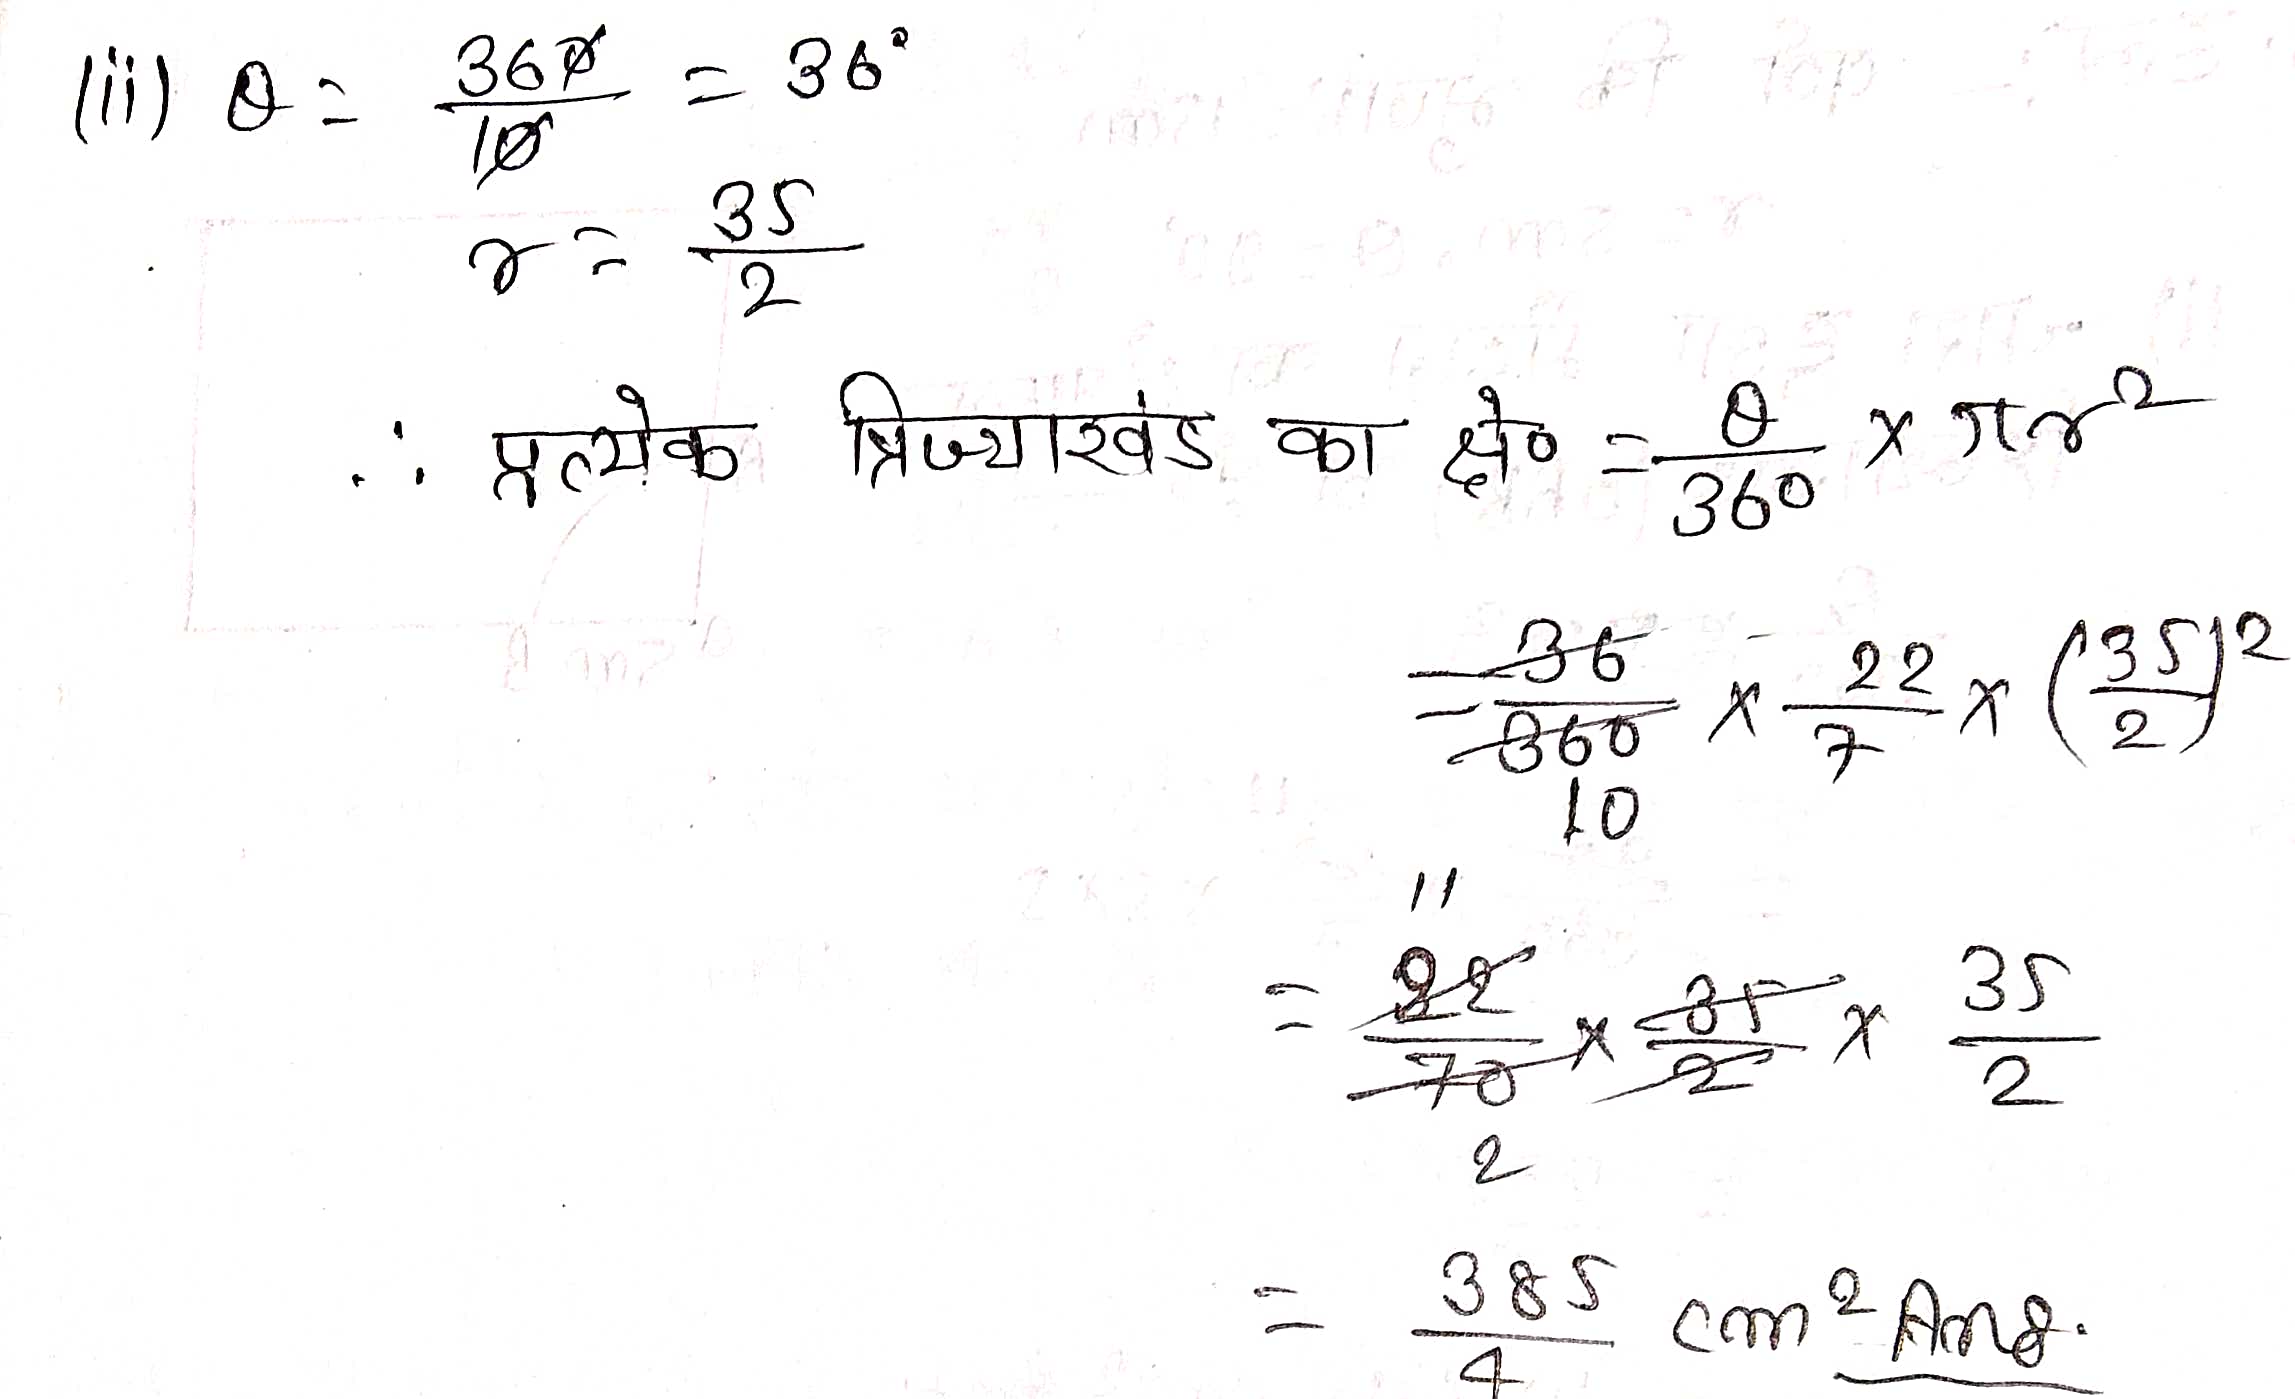 (ii) θ = 360/10 = 36°
r = 35/2
∴ प्रत्येक त्रिज्याखंड का क्षे० = θ/360 × πr²
= 36/360 × 22/7 × (35/2)²
10
11
= 22/70 × 35/2 × 35/2
2
= 385/4 cm² Ans.